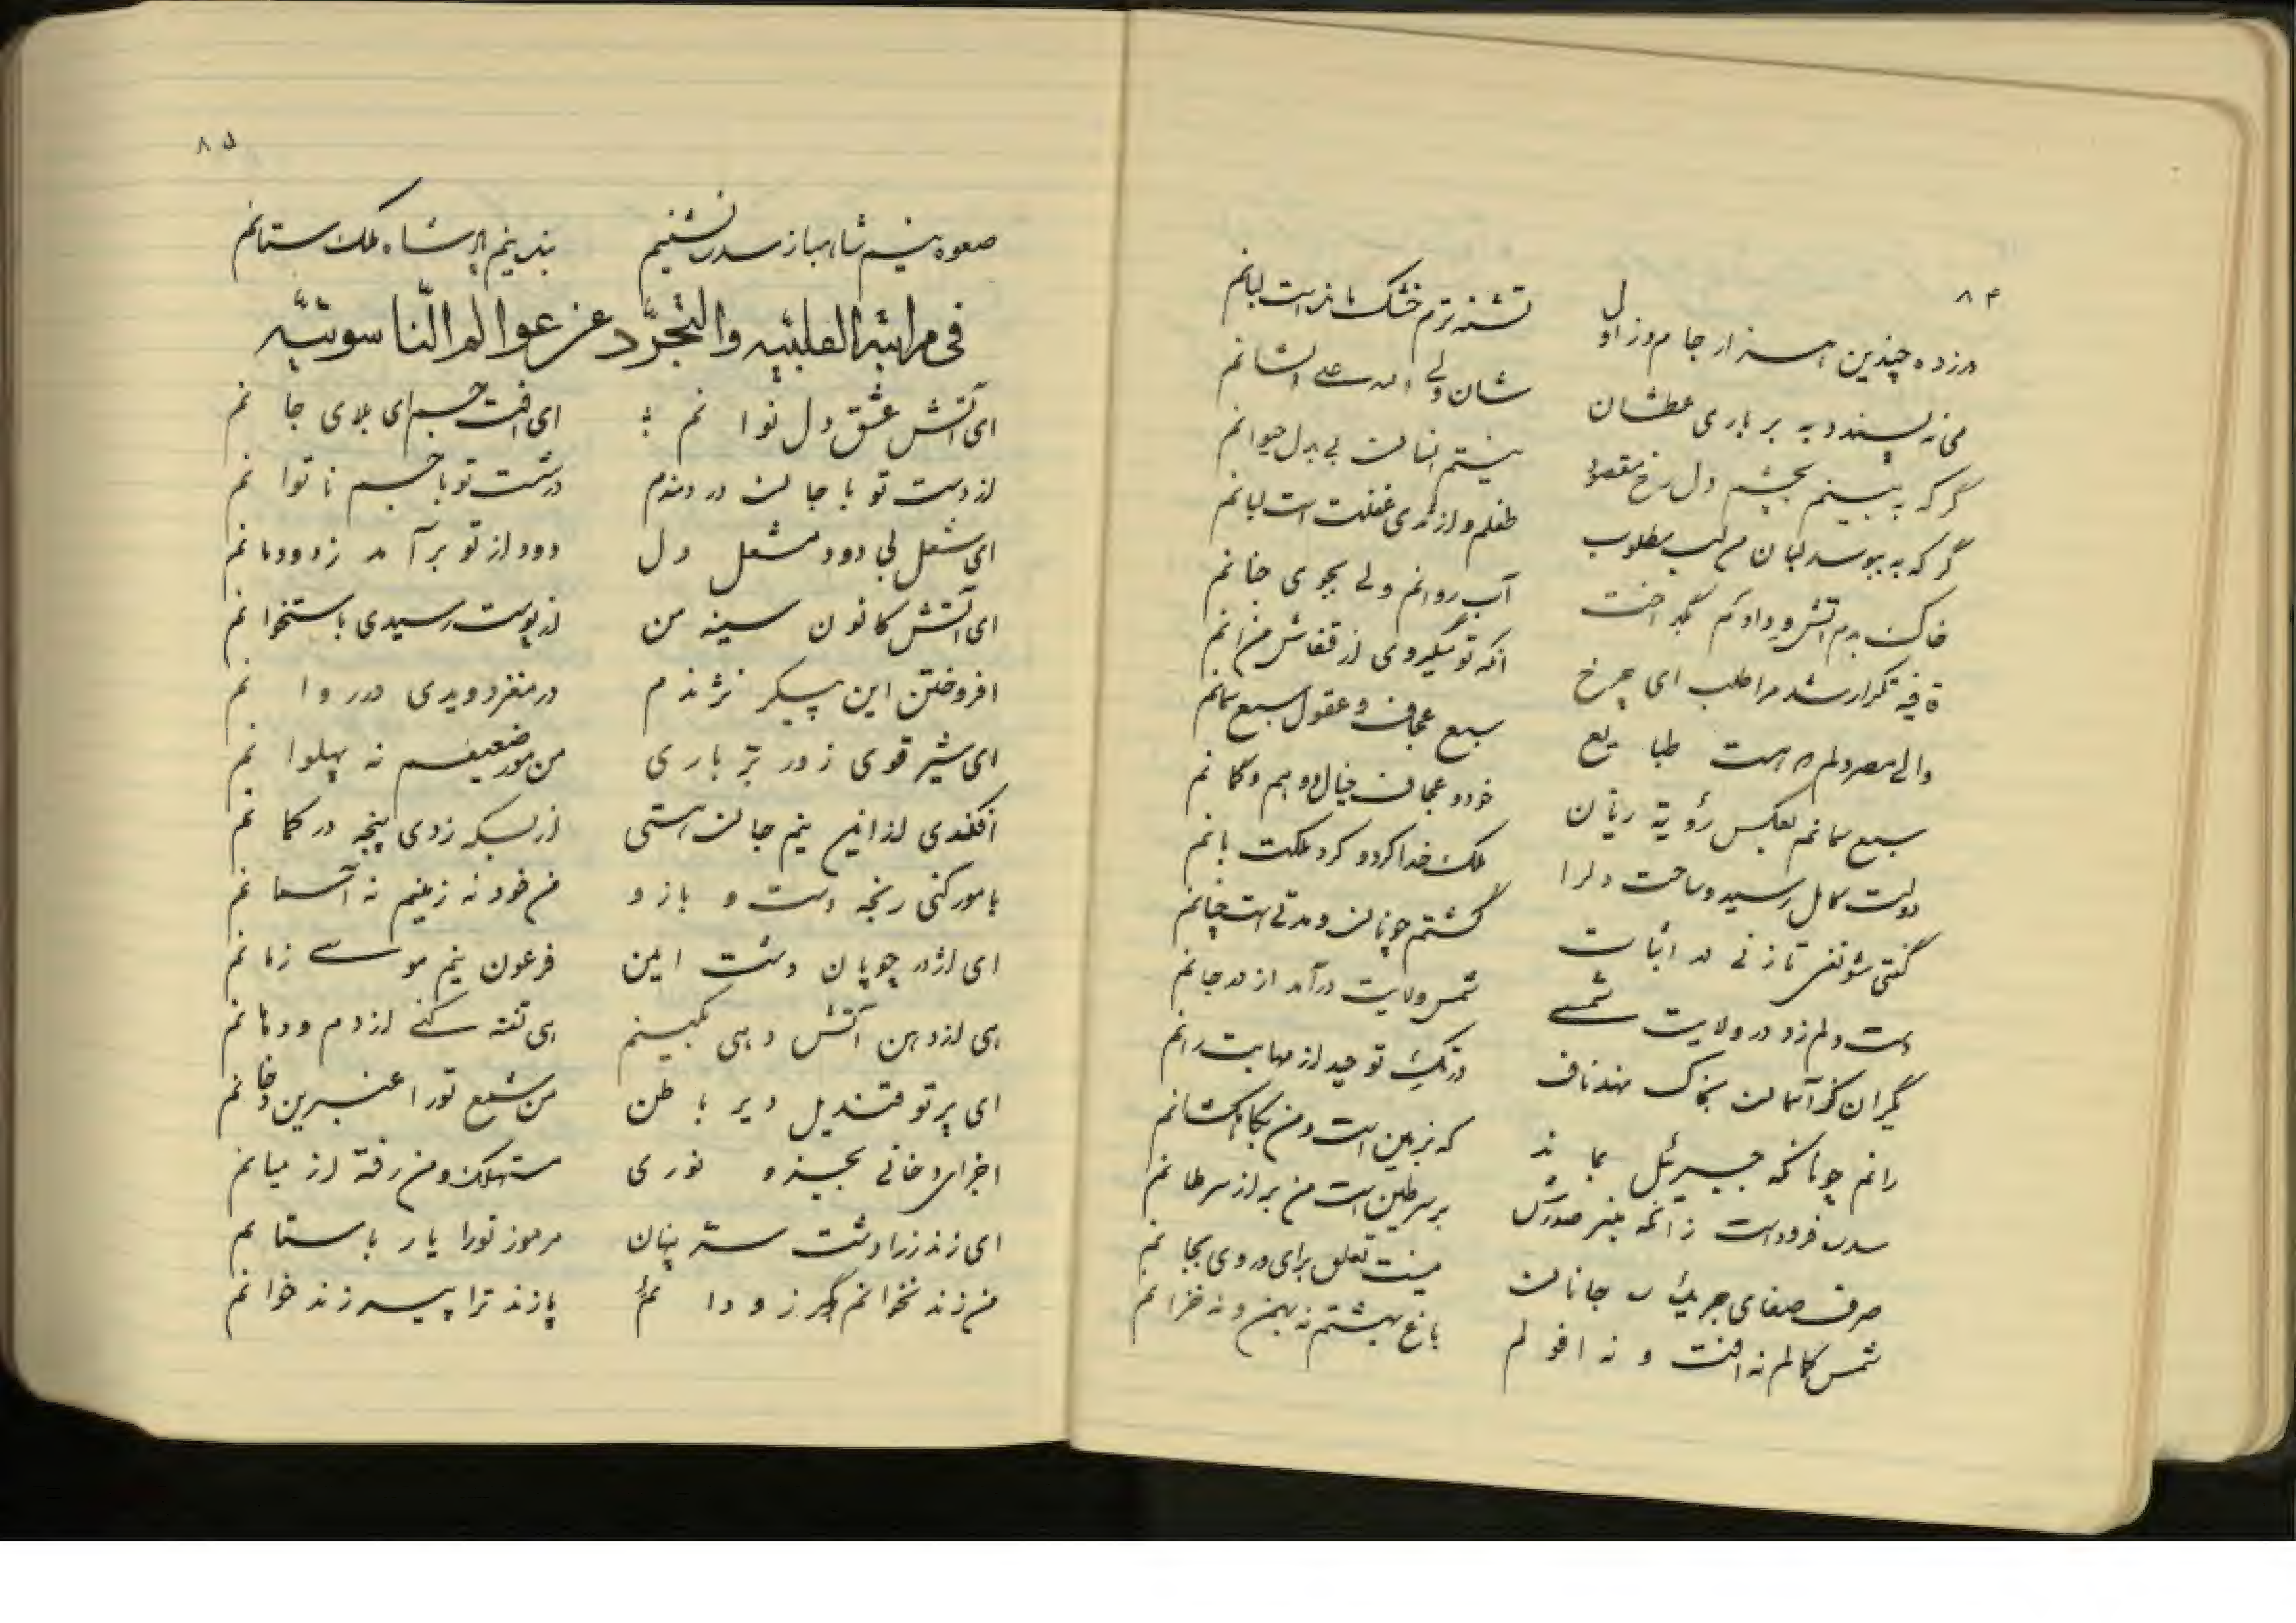 ۸۴
در زده چندین هزار جام و ز اول تشنه ترم خشک مانده است لبانم
می نه پسندد به بر باری عطشان شان ولی
گر که به بینم بچشم دل رخ مقصود نیستم انسان بی بدل حیوانم
گر که به بوسد لبان من لب مطلوب طفلم و از ثدی غفلت است لبانم
خاک بدم آتش و دادم بگداخت آب روانم ولی بجوی جنانم
قافیه تکرار شد مرا طلب ای چرخ آنکه تو میگردی از قفاش من آنم
والی مصر دلم طبایع سبع عجاف و عقول سبع سمانم
سبع سمانم بعکس رؤیة ریان خورد عجاف خیال و وهم و گمانم
دولت کامل رسید و ساحت دل را ملک خدا کرد و کرد ملکت بانم
گفتی شو نفی تا زنی در اثبات گشتم چونان و مدتی است چنانم
دست دلم زد در ولایت شمسی شمس ولایت درآمد از در جانم
یکران کز آسمان بخاک نهد ناف در تک توحید از مهابت رانم
رانم چونانکه جبرئیل بماند که بزمین است و من بکاهکشانم
سدره فرود است زآنکه بر سرطین است من بر از سرطانم
صرف صفای جانان نیست تعلق برای و روی بجانم
شمس کمالم نه آفت و نه افولم باغ بهشتم نه بهمن و نه خزانم
۸۵
صعوه نیم شاهباز سدره نشینم بنده نیم پادشاه ملک ستانم
فی مراتبه القلبیّه والتجرّد عن عوالم النّاسوتیّه
ای آتش عشق دل نوانم ای آفت جسم ای بلای جانم
از دست تو با جان دردمندم در شست تو با جسم ناتوانم
ای شعل بی دود مشعل دل دود از تو بر آمد ز دودمانم
ای آتش کانون سینه من از پوست رسیدی باستخوانم
افروختن این پیکر نژندم در مغز دویدی در روانم
ای شیر قوی زور بر باری من مور ضعیفم نه پهلوانم
افکندی از این نیم جان هستی از بسکه زدی پنجه در کمانم
با مور کنی رنجه دست و بازو من خود نه زمینم نه آسمانم
ای اژدر چوپان دشت ایمن فرعون نیم موسی زمانم
هی از دهن آتش دهی بکینم هی تفته کنی از دم و دمانم
ای پرتو قندیل دیر باطن من شمع تو را عنبرین دخانم
اجزای دخانی بجذوه نوری مستهلک و من رفته از میانم
ای زند زرادشت ستر پنهان مرموز تو را یار باستانم
من زند نخوانم پازند ترا پیر زند خوانم